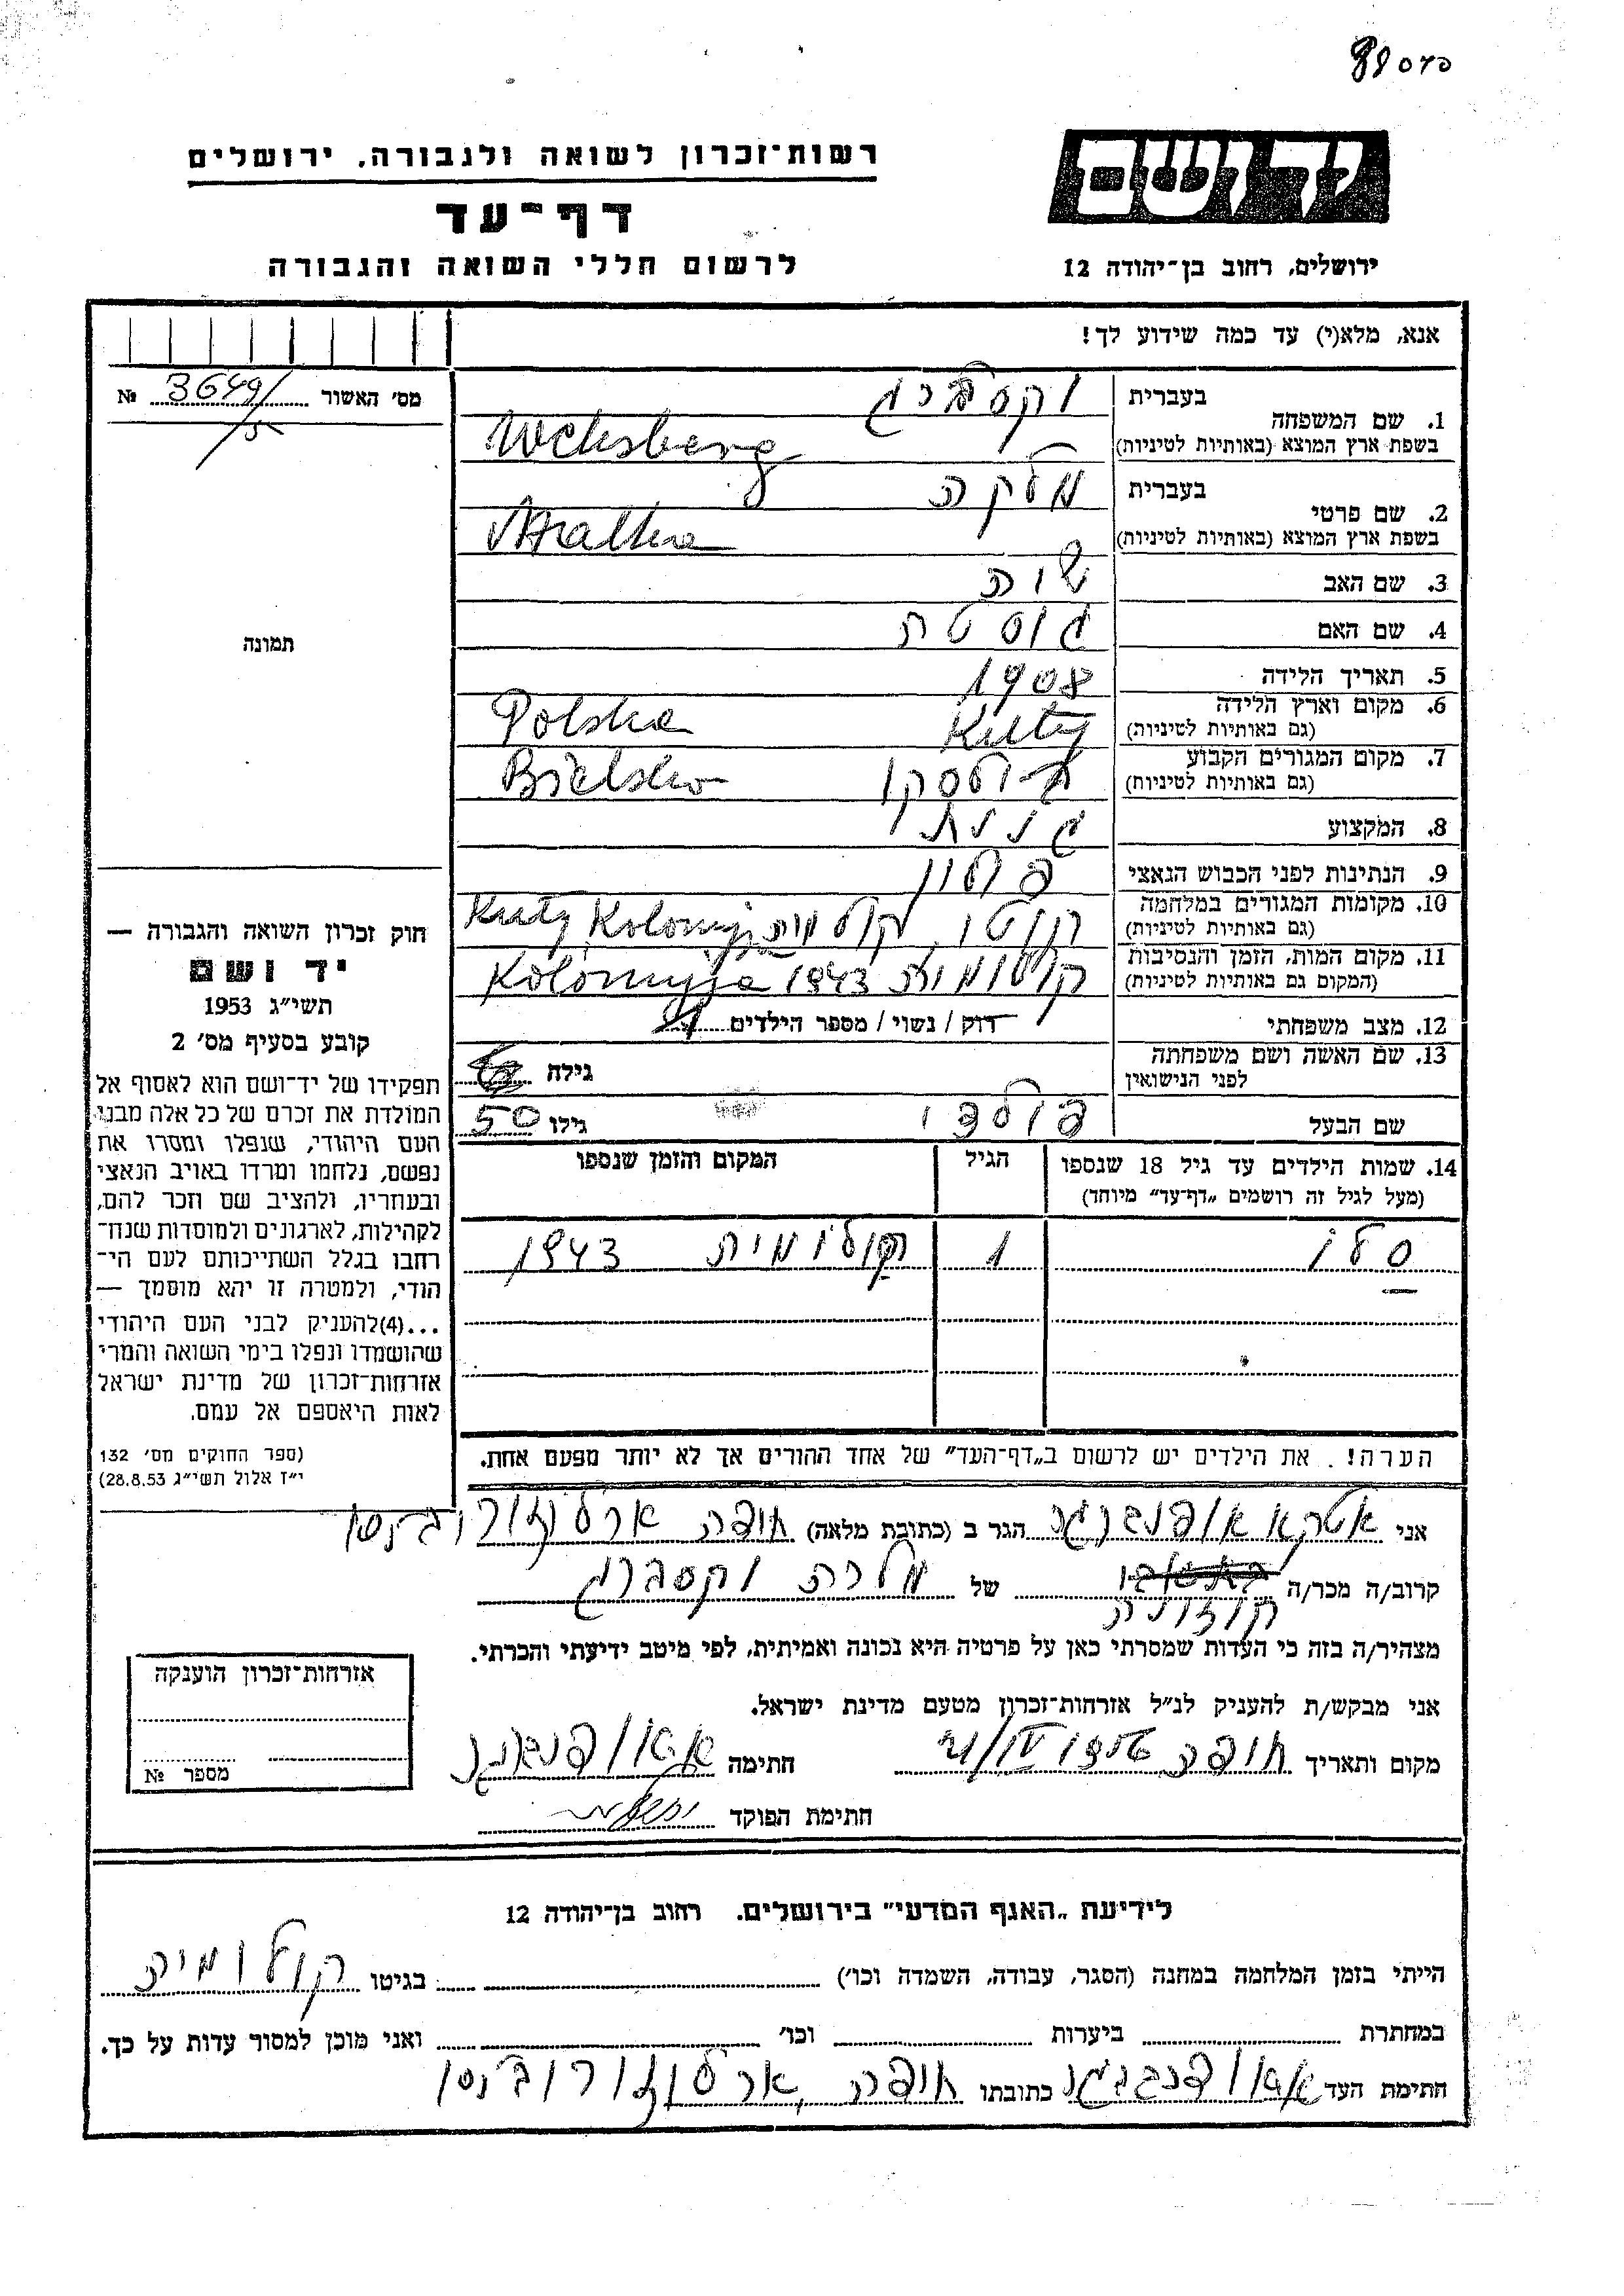 רשות־זכרון לשואה ולגבורה, ירושלים
דף־עד
לרשום חללי השואה והגבורה
יד ושם
ירושלים, רחוב בן־יהודה 12
אנא, מלא(י) עד כמה שידוע לך!
מס׳ האשור № 3649/
1. שם המשפחה
בעברית וקסברג
בשפת ארץ המוצא (באותיות לטיניות) Weksberg
2. שם פרטי
בעברית מלקה
בשפת ארץ המוצא (באותיות לטיניות) Malka
3. שם האב
4. שם האם
5. תאריך הלידה 1908
6. מקום וארץ הלידה
(גם באותיות לטיניות) Kuty Polska
7. מקום המגורים הקבוע
(גם באותיות לטיניות) Bielsko
8. המקצוע
9. הנתינות לפני הכבוש הנאצי פולין
10. מקומות המגורים במלחמה
(גם באותיות לטיניות) Kuty
11. מקום המות, הזמן והנסיבות
(המקום גם באותיות לטיניות) 1943 Kolomyja
12. מצב משפחתי רווק / נשוי / מספר הילדים 1
13. שם האשה ושם משפחתה
לפני הנישואין
גילה
שם הבעל גילו 50
14. שמות הילדים עד גיל 18 שנספו
(מעל לגיל זה רושמים „דף־עד” מיוחד)
הגיל
המקום והזמן שנספו
1 קולומיה 1943
תמונה
חוק זכרון השואה והגבורה —
יד ושם
תשי״ג 1953
קובע בסעיף מס׳ 2
תפקידו של יד־ושם הוא לאסוף אל
המולדת את זכרם של כל אלה מבני
העם היהודי, שנפלו ומסרו את
נפשם, נלחמו ומרדו באויב הנאצי
ובעוזריו, ולהציב שם וזכר להם,
לקהילות, לארגונים ולמוסדות שנח־
רבו בגלל השתייכותם לעם הי־
הודי, ולמטרה זו יהא מוסמך —
...(4)להעניק לבני העם היהודי
שהושמדו ונפלו בימי השואה והמרי
אזרחות־זכרון של מדינת ישראל
לאות היאספם אל עמם.
(ספר החוקים מס׳ 132
י״ז אלול תשי״ג 28.8.53)
הערה! . את הילדים יש לרשום ב„דף־העד” של אחד ההורים אך לא יותר מפעם אחת.
אני הגר ב (כתובת מלאה) חיפה
קרוב/ה מכר/ה קוזינה של מלכה וקסברג
מצהיר/ה בזה כי העדות שמסרתי כאן על פרטיה היא נכונה ואמיתית, לפי מיטב ידיעתי והכרתי.
אני מבקש/ת להעניק לנ״ל אזרחות־זכרון מטעם מדינת ישראל.
מקום ותאריך חיפה חתימה
חתימת הפוקד
אזרחות־זכרון הוענקה
מספר №
לידיעת „האגף המדעי” בירושלים. רחוב בן־יהודה 12
הייתי בזמן המלחמה במחנה (הסגר, עבודה, השמדה וכו׳) בגיטו קולומיה
במחתרת ביערות וכו׳ ואני מוכן למסור עדות על כך.
חתימת העד כתובתו חיפה